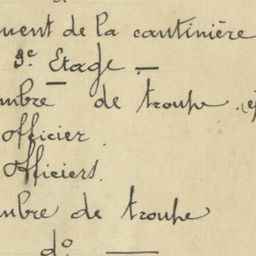 ment de la cantinière
3e. Etage. —
mbre de troupe
officier.
officiers.
mbre de troupe
do. —